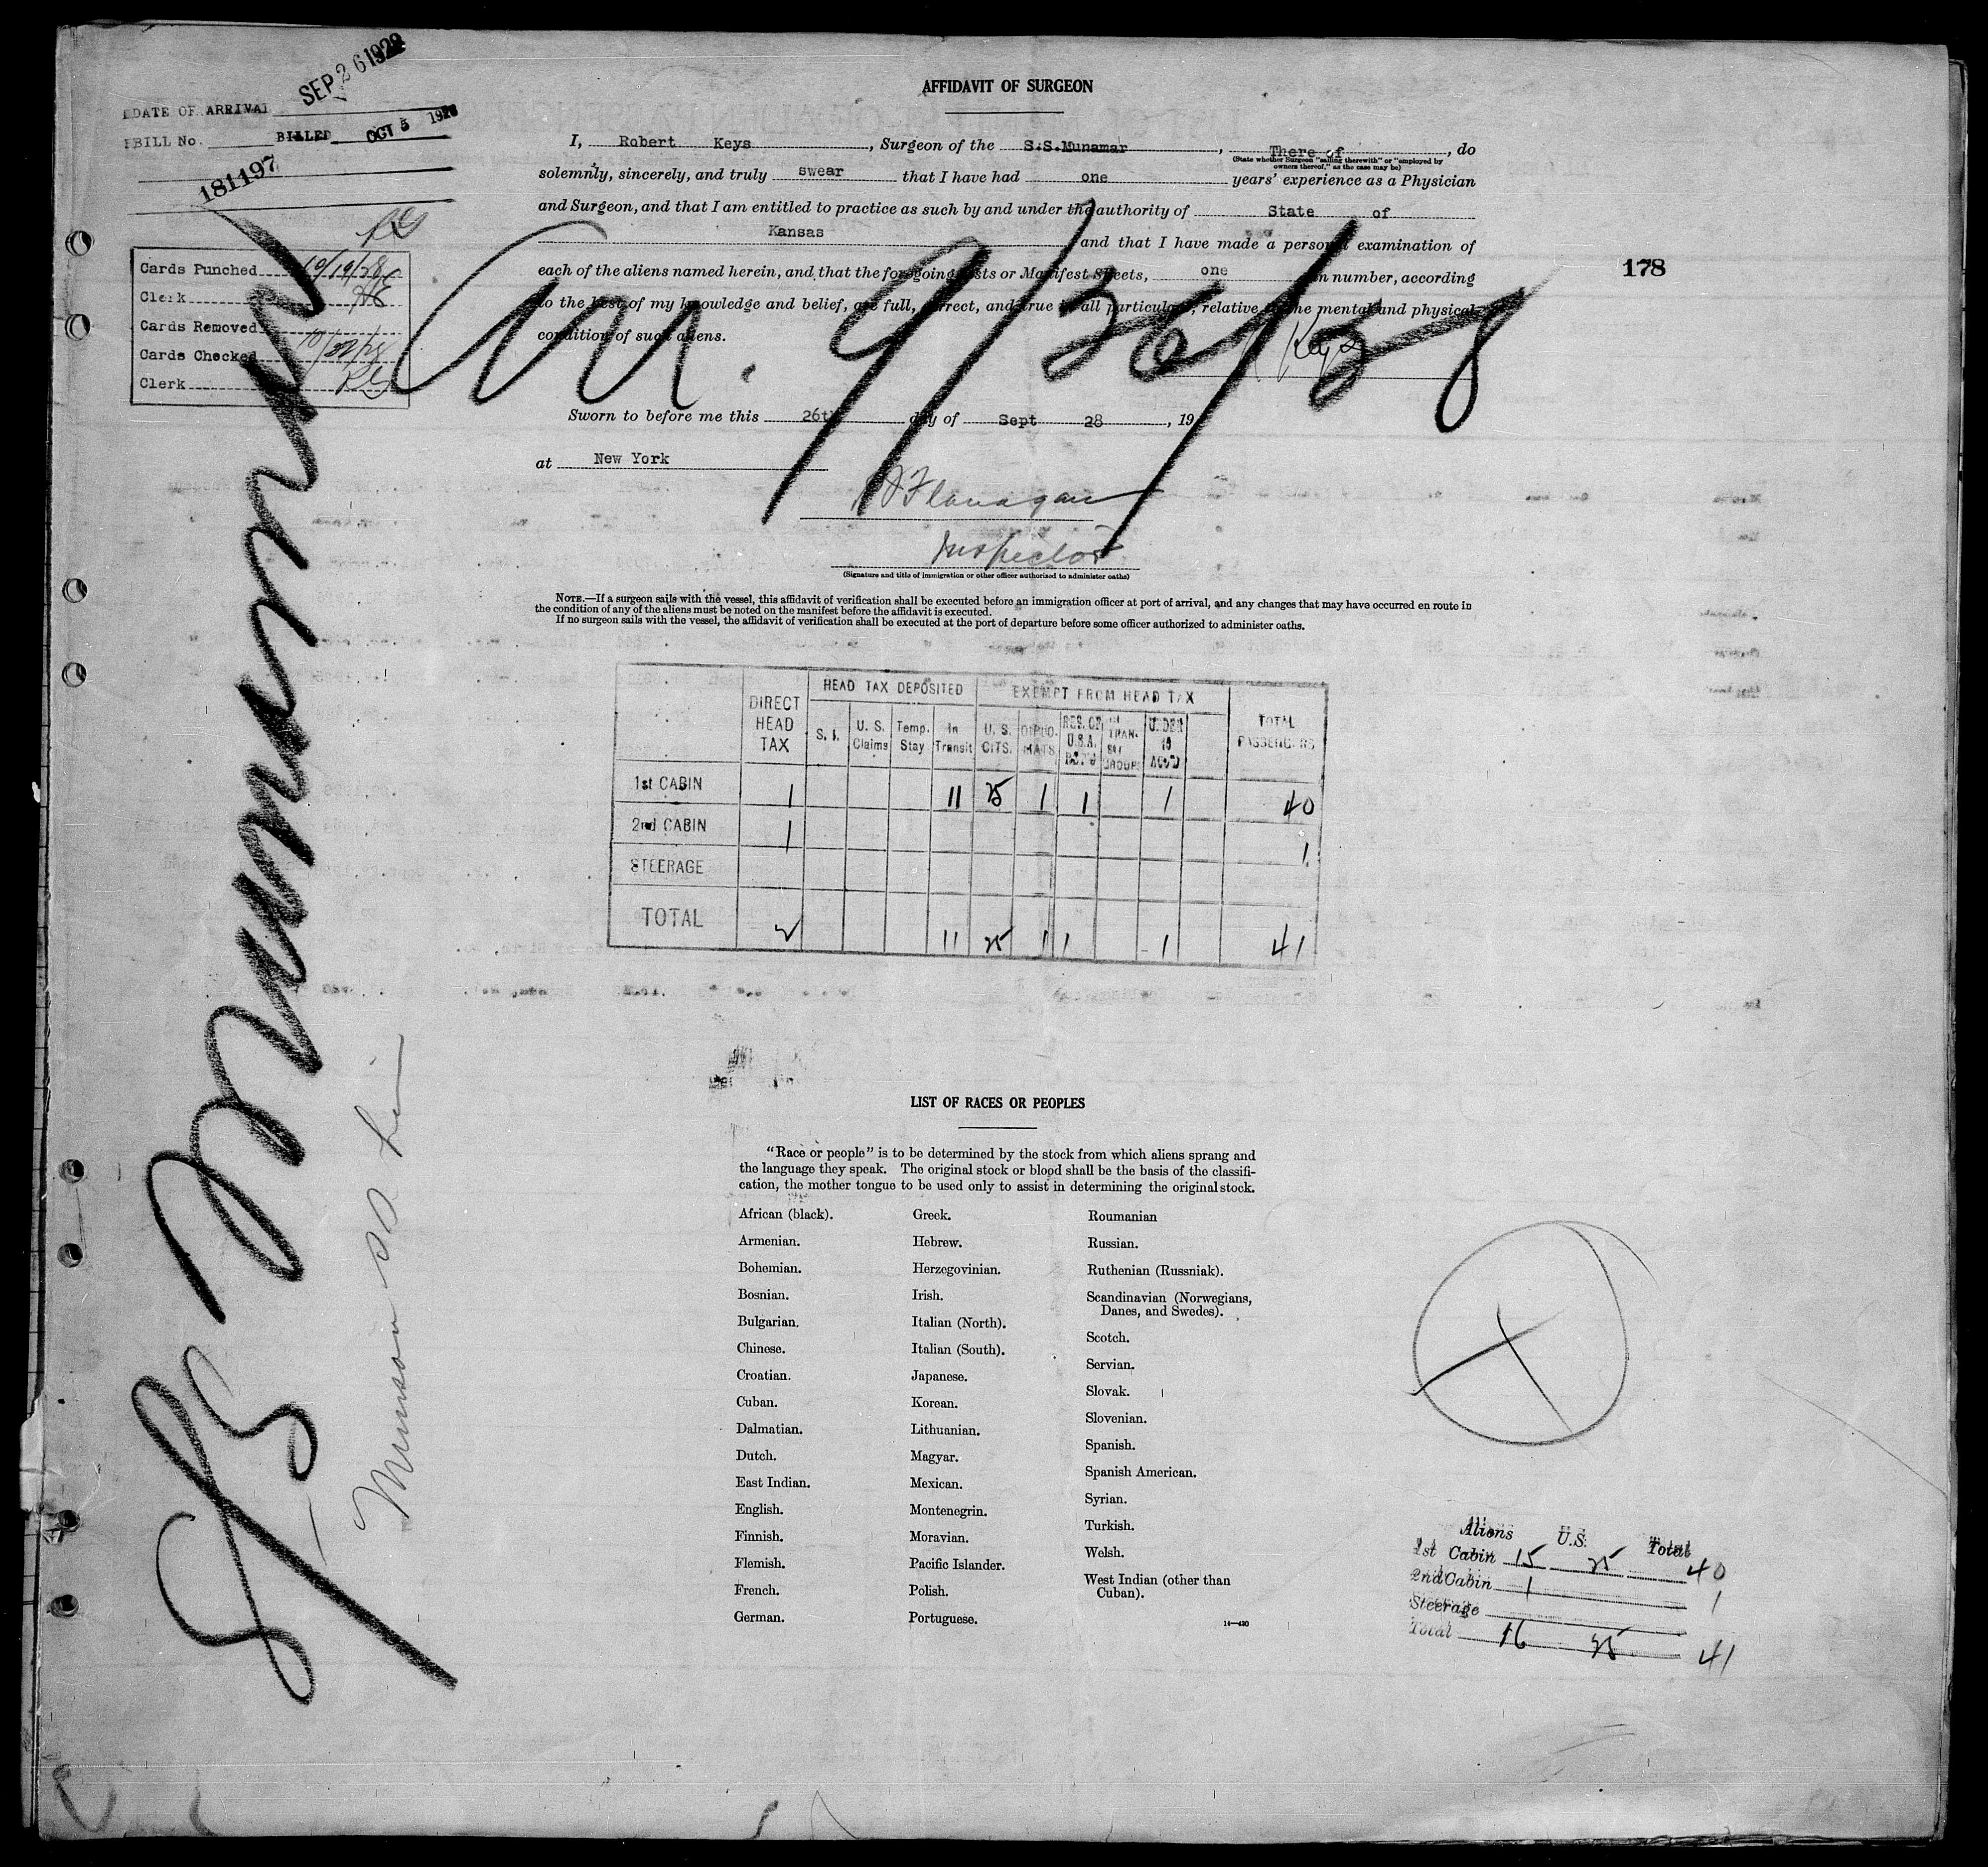 DATE OF ARRIVAL SEP 26 1928
BILL No. BILLED OCT 5 1928
181197
Cards Punched 10/19/28
Clerk
Cards Removed
Cards Checked 10/22/28
Clerk
AFFIDAVIT OF SURGEON
I, Robert Keys, Surgeon of the S.S.Munamar, There of, do
(State whether Surgeon "sailing therewith" or "employed by
owners thereof," as the case may be)
solemnly, sincerely, and truly swear that I have had one years' experience as a Physician
and Surgeon, and that I am entitled to practice as such by and under the authority of State of
Kansas and that I have made a personal examination of
each of the aliens named herein, and that the foregoing Lists or Manifest Sheets, one in number, according
to the best of my knowledge and belief, are full, correct, and true in all particulars, relative to the mental and physical
condition of such aliens.
Keys
178
Arr. 9/26/28
Sworn to before me this 26th day of Sept 28, 19
at New York
Flanagan
Inspector
(Signature and title of immigration or other officer authorized to administer oaths)
NOTE.—If a surgeon sails with the vessel, this affidavit of verification shall be executed before an immigration officer at port of arrival, and any changes that may have occurred en route in
the condition of any of the aliens must be noted on the manifest before the affidavit is executed.
If no surgeon sails with the vessel, the affidavit of verification shall be executed at the port of departure before some officer authorized to administer oaths.
S/S Munamar
Munson SS Line
DIRECT HEAD TAX HEAD TAX DEPOSITED EXEMPT FROM HEAD TAX TOTAL PASSENGERS
S. I. U. S. Claims Temp. Stay In Transit U. S. CITS. DIPLO-MATS RES. OF U.S.A. RET'G IN TRAN-SIT GROUPS UNDER 16 ACC'D
1st CABIN 1 11 25 1 1 1 40
2nd CABIN 1 1
STEERAGE
TOTAL 2 11 25 1 1 1 41
LIST OF RACES OR PEOPLES
"Race or people" is to be determined by the stock from which aliens sprang and
the language they speak. The original stock or blood shall be the basis of the classifi-
cation, the mother tongue to be used only to assist in determining the original stock.
African (black).
Armenian.
Bohemian.
Bosnian.
Bulgarian.
Chinese.
Croatian.
Cuban.
Dalmatian.
Dutch.
East Indian.
English.
Finnish.
Flemish.
French.
German.
Greek.
Hebrew.
Herzegovinian.
Irish.
Italian (North).
Italian (South).
Japanese.
Korean.
Lithuanian.
Magyar.
Mexican.
Montenegrin.
Moravian.
Pacific Islander.
Polish.
Portuguese.
Roumanian
Russian.
Ruthenian (Russniak).
Scandinavian (Norwegians,
Danes, and Swedes).
Scotch.
Servian.
Slovak.
Slovenian.
Spanish.
Spanish American.
Syrian.
Turkish.
Welsh.
West Indian (other than
Cuban).
14—430
Aliens U.S. Total
1st Cabin 15 25 40
2nd Cabin 1 1
Steerage
Total 16 25 41